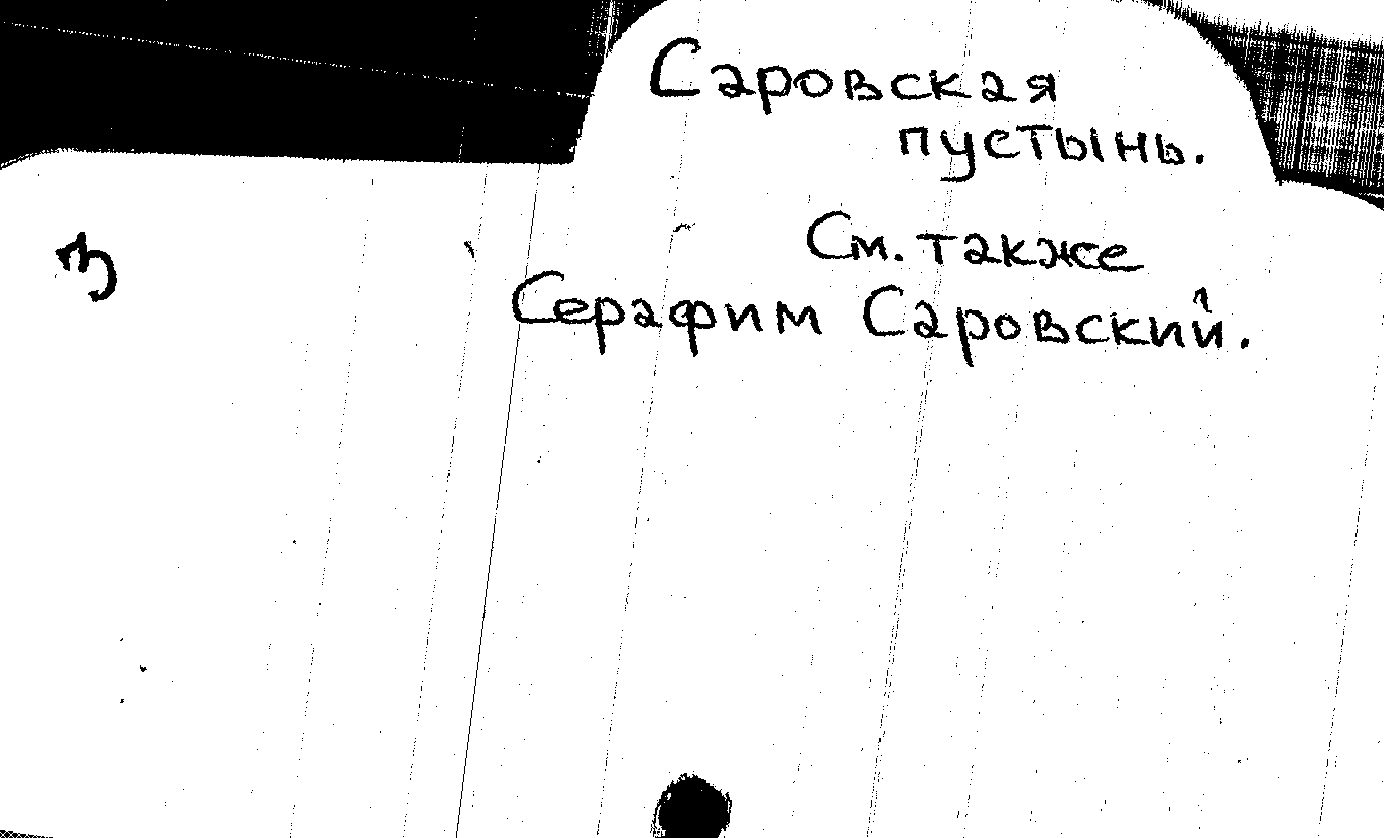 Саровская
пустынь.
См. также
Серафим Саровский.